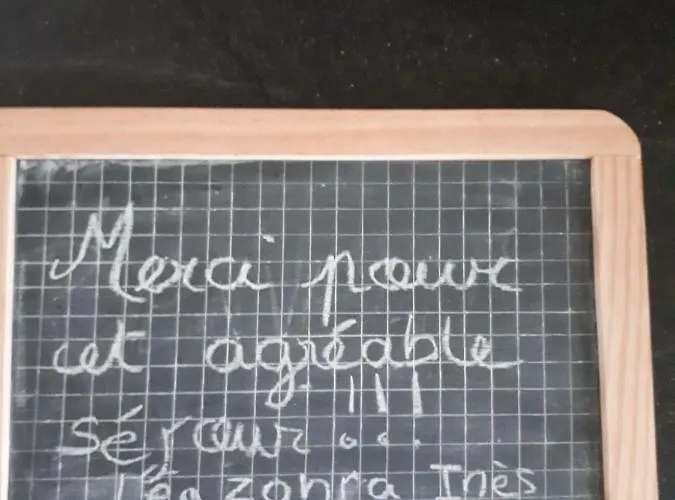 Merci pour
cet agréable
sérour !!!
Léa zohra Inès